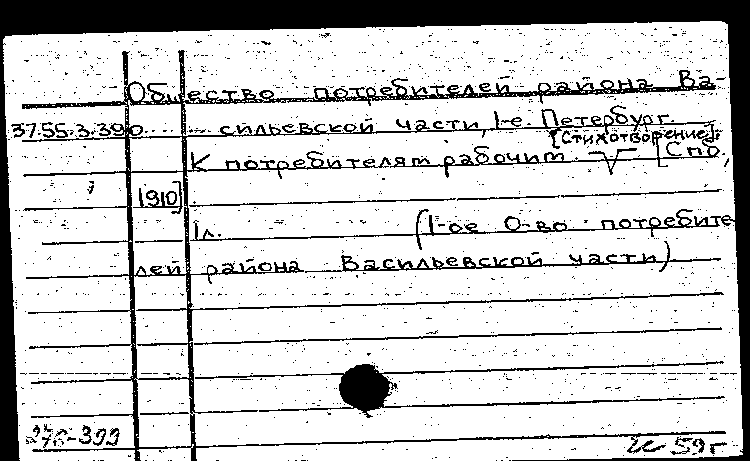 Общество потребителей района Ва-
37.55.3.390 сильевской части, 1-е. Петербург.
[Стихотворение].
К потребителям рабочим. [Спб,
1910]
1л. (1-ое О-во потребите
лей района Васильевской части)
276-399
59г